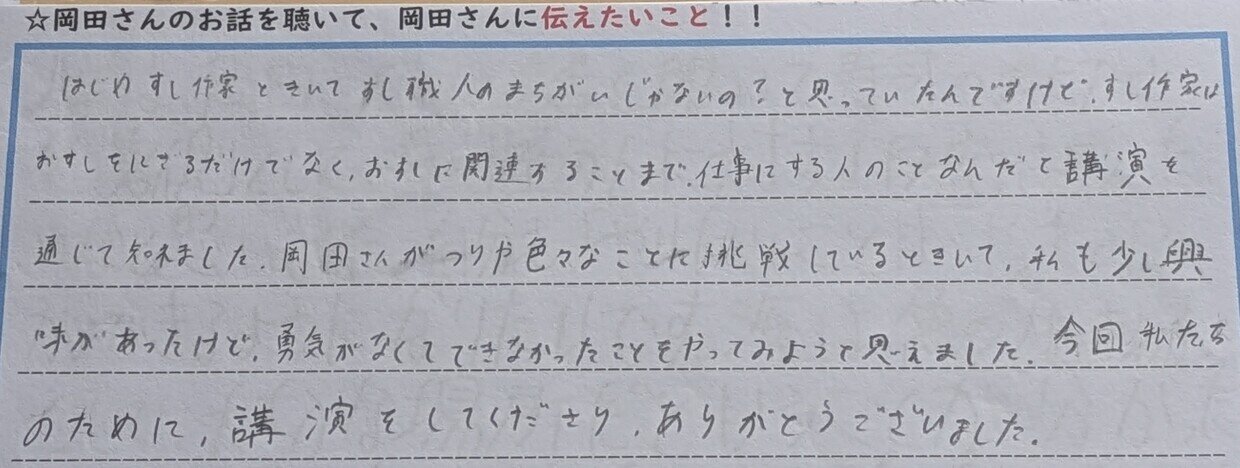 ☆岡田さんのお話を聴いて、岡田さんに伝えたいこと！！
はじめ すし作家 ときいて すし職人のまちがいじゃないの？と思っていたんですけど、すし作家は
おすしをにぎるだけでなく、おすしに関連することまで、仕事にする人のことなんだと講演を
通じて知れました。岡田さんがつりや色々なことに挑戦しているときいて、私も少し興
味があったけど、勇気がなくてできなかったことをやってみようと思えました。今回 私たち
のために、講演をしてくださり、ありがとうございました。